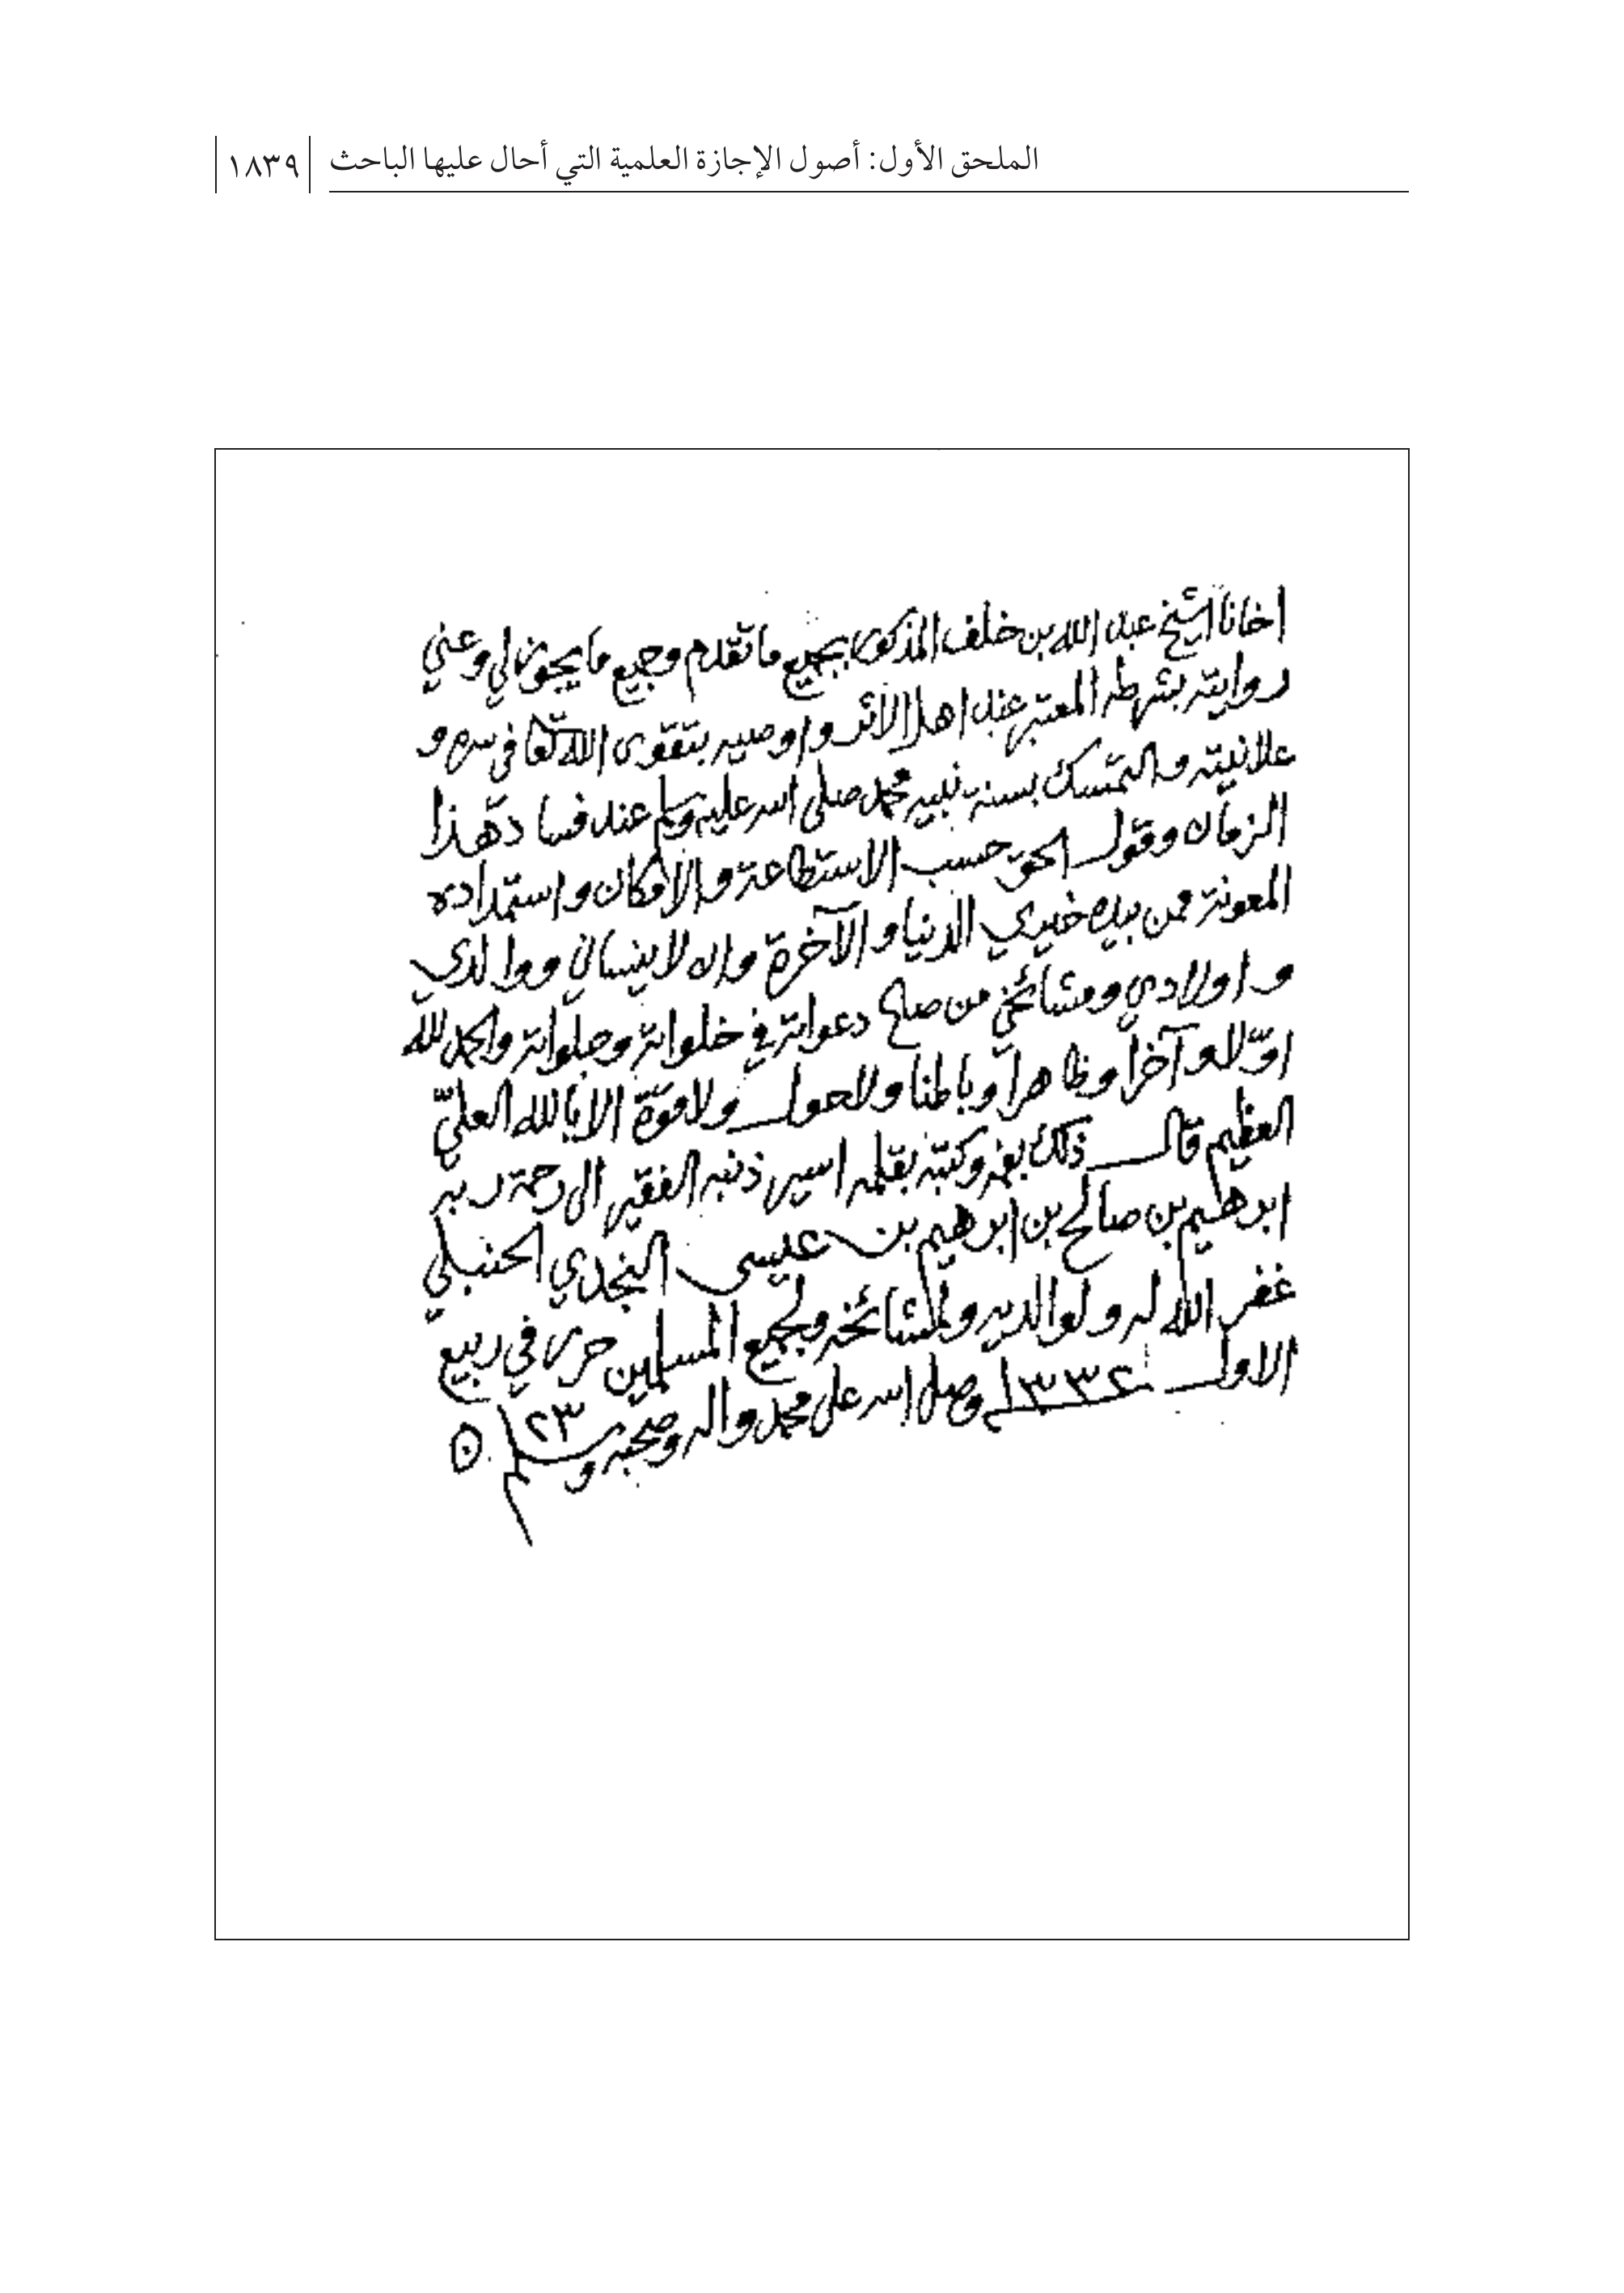 الملحق الأول: أصول الإجازة العلمية التي أحال عليها الباحث ١٨٣٩
اخانا الشيخ عبد الله بن خلف المذكور بجميع ما تقدم وجميع ما يجوز لي وعني
روايته بشرطه المعتبر عند اهل الاثر واوصيه بتقوى الله تعا في سره و
علانيته والتمسك بسنة نبيه محمد صلى الله عليه وسلم عند فساد هذا
الزمان وقول الحق حسب الاستطاعة والامكان واستمداده
المعونة ممن بيده خيري الدنيا والآخرة وان لا ينساني ووالدي
و اولادي ومشائخي من صالح دعواته في خلواته وصلواته والحمد لله
اوّلا و آخراً وظاهراً وباطنا ولا حول ولا قوّة الا بالله العليّ
العظيم قال ذلك بفمه وكتبه بقلمه اسير ذنبه الفقير الى رحمة ربه
ابرهيم بن صالح بن ابرهيم بن عيسى النجدي الحنبلي
غفر الله له ولوالديه ولمشائخه ولجميع المسلمين حرر في ربيع
الاول ١٣٣٤ وصلى الله على محمد واله وصحبه و ٢٣